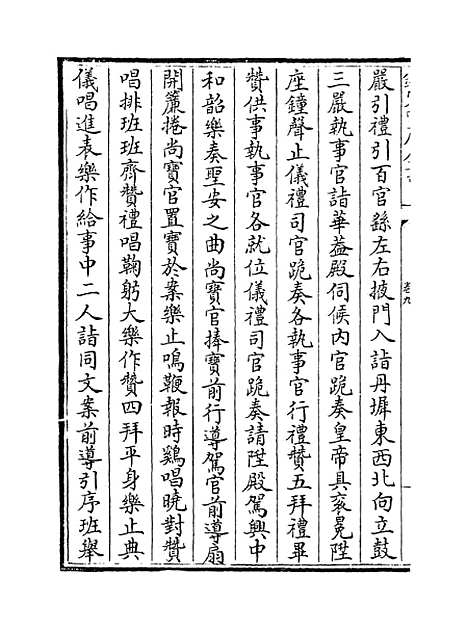 嚴引禮引百官繇左右掖門入詣丹墀東西北向立鼓
三嚴執事官詣華葢殿伺候内官跪奏皇帝具衮冕陞
座鐘聲止儀禮司官跪奏各執事官行禮贊五拜禮畢
贊供事執事官各就位儀禮司官跪奏請陞殿駕興中
和韶樂奏聖安之曲尚寶官捧寶前行導駕官前導扇
開簾捲尚寶官置寶於案樂止鳴鞭報時雞唱曉對贊
唱排班班齊贊禮唱鞠躬大樂作贊四拜平身樂止典
儀唱進表樂作給事中二人詣同文案前導引序班舉